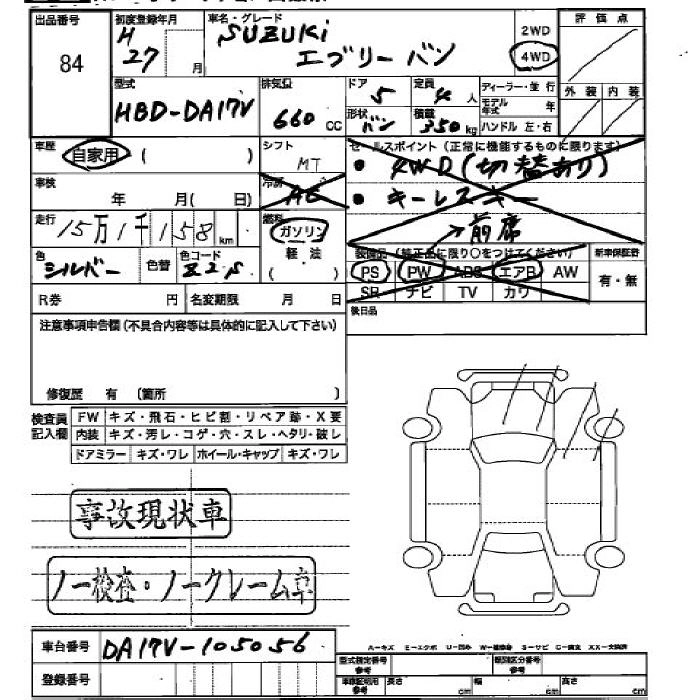 出品番号 初度登録年月 車名・グレード 評価点
84 H 27 月 SUZUKI エブリーバン 2WD 4WD
型式 排気量 ドア 定員 ディーラー・並行 外装 内装
HBD-DA17V 660 CC 5 4人 モデル年式 年
形状 バン 積載 350kg ハンドル 左・右
車歴 自家用 ( ) シフト MT セールスポイント(正常に機能するものに限ります)
車検 年 月( 日) 冷房 AC ● 4WD(切替あり)
● キーレスキー
走行 15万1千158km 燃料 ガソリン 軽油 ( ) →前席
色 シルバー 色替 色コード Z2S 装備品(純正品に限り○をつけてください) 新車保証書
PS PW ABS エアB AW 有・無
R券 円 名変期限 月 日 SR ナビ TV カワ
注意事項申告欄(不具合内容等は具体的に記入して下さい) 後日品
修復歴 有 〔箇所 〕
検査員記入欄 FW キズ・飛石・ヒビ割・リペア跡・X要
内装 キズ・汚レ・コゲ・穴・スレ・ヘタリ・破レ
ドアミラー キズ・ワレ ホイール・キャップ キズ・ワレ
事故現状車
ノー検査・ノークレーム車
車台番号 DA17V-105056
A=キズ E=エクボ U=凹み W=補修跡 S=サビ C=腐食 XX=交換済
登録番号 型式指定番号 参考 類別区分番号 参考
車検証記用 参考 長さ cm 幅 cm 高さ cm